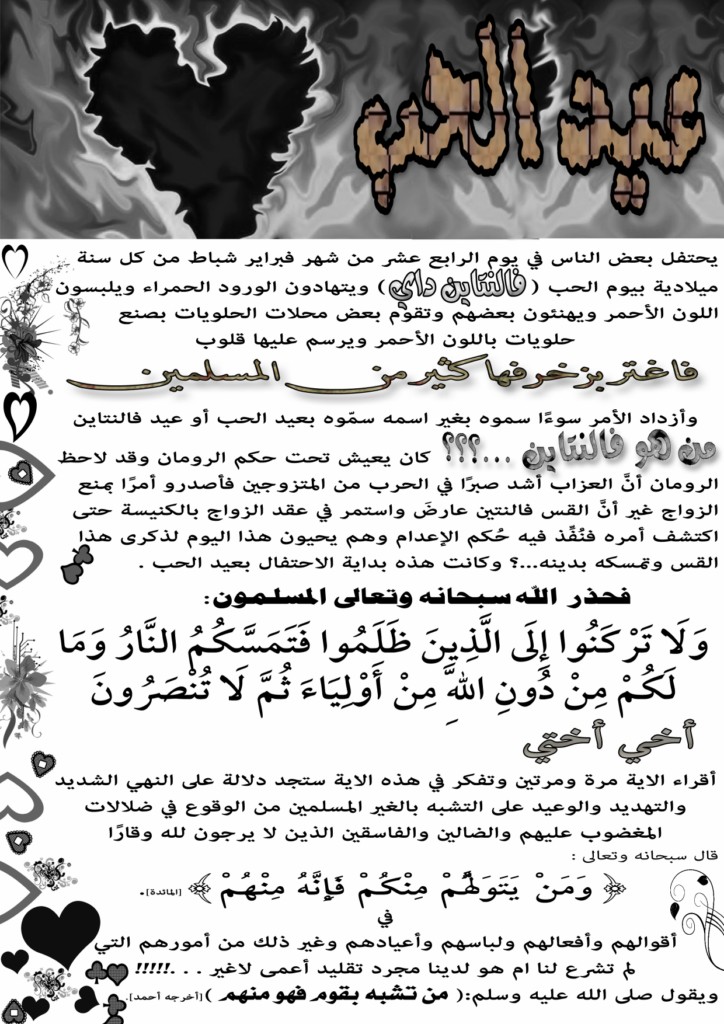 عيد الحب
يحتفل بعض الناس في يوم الرابع عشر من شهر فبراير شباط من كل سنة
ميلادية بيوم الحب ( فالنتاين داي ) ويتهادون الورود الحمراء ويلبسون
اللون الأحمر ويهنئون بعضهم وتقوم بعض محلات الحلويات بصنع
حلويات باللون الأحمر ويرسم عليها قلوب
فاغتر بزخرفها كثير من المسلمين
وأزداد الأمر سوءًا سموه بغير اسمه سمّوه بعيد الحب أو عيد فالنتاين
من هو فالنتاين ...؟؟؟ كان يعيش تحت حكم الرومان وقد لاحظ
الرومان أنَّ العزاب أشد صبرًا في الحرب من المتزوجين فأصدرو أمرًا بمنع
الزواج غير أنَّ القس فالنتين عارضَ واستمر في عقد الزواج بالكنيسة حتى
اكتشف أمره فنُفِّذ فيه حُكم الإعدام وهم يحيون هذا اليوم لذكرى هذا
القس وتمسكه بدينه...؟ وكانت هذه بداية الاحتفال بعيد الحب .
فحذر الله سبحانه وتعالى المسلمون:
وَلَا تَرْكَنُوا إِلَى الَّذِينَ ظَلَمُوا فَتَمَسَّكُمُ النَّارُ وَمَا
لَكُمْ مِنْ دُونِ اللَّهِ مِنْ أَوْلِيَاءَ ثُمَّ لَا تُنْصَرُونَ
أخي أختي
أقراء الاية مرة ومرتين وتفكر في هذه الاية ستجد دلالة على النهي الشديد
والتهديد والوعيد على التشبه بالغير المسلمين من الوقوع في ضلالات
المغضوب عليهم والضالين والفاسقين الذين لا يرجون لله وقارًا
قال سبحانه وتعالى :
﴿ وَمَنْ يَتَوَلَّهُمْ مِنْكُمْ فَإِنَّهُ مِنْهُمْ ﴾ [المائدة].
في
أقوالهم وأفعالهم ولباسهم وأعيادهم وغير ذلك من أمورهم التي
لم تشرع لنا ام هو لدينا مجرد تقليد أعمى لاغير . . .!!!!!
ويقول صلى الله عليه وسلم:( من تشبه بقوم فهو منهم )[أخرجه أحمد].